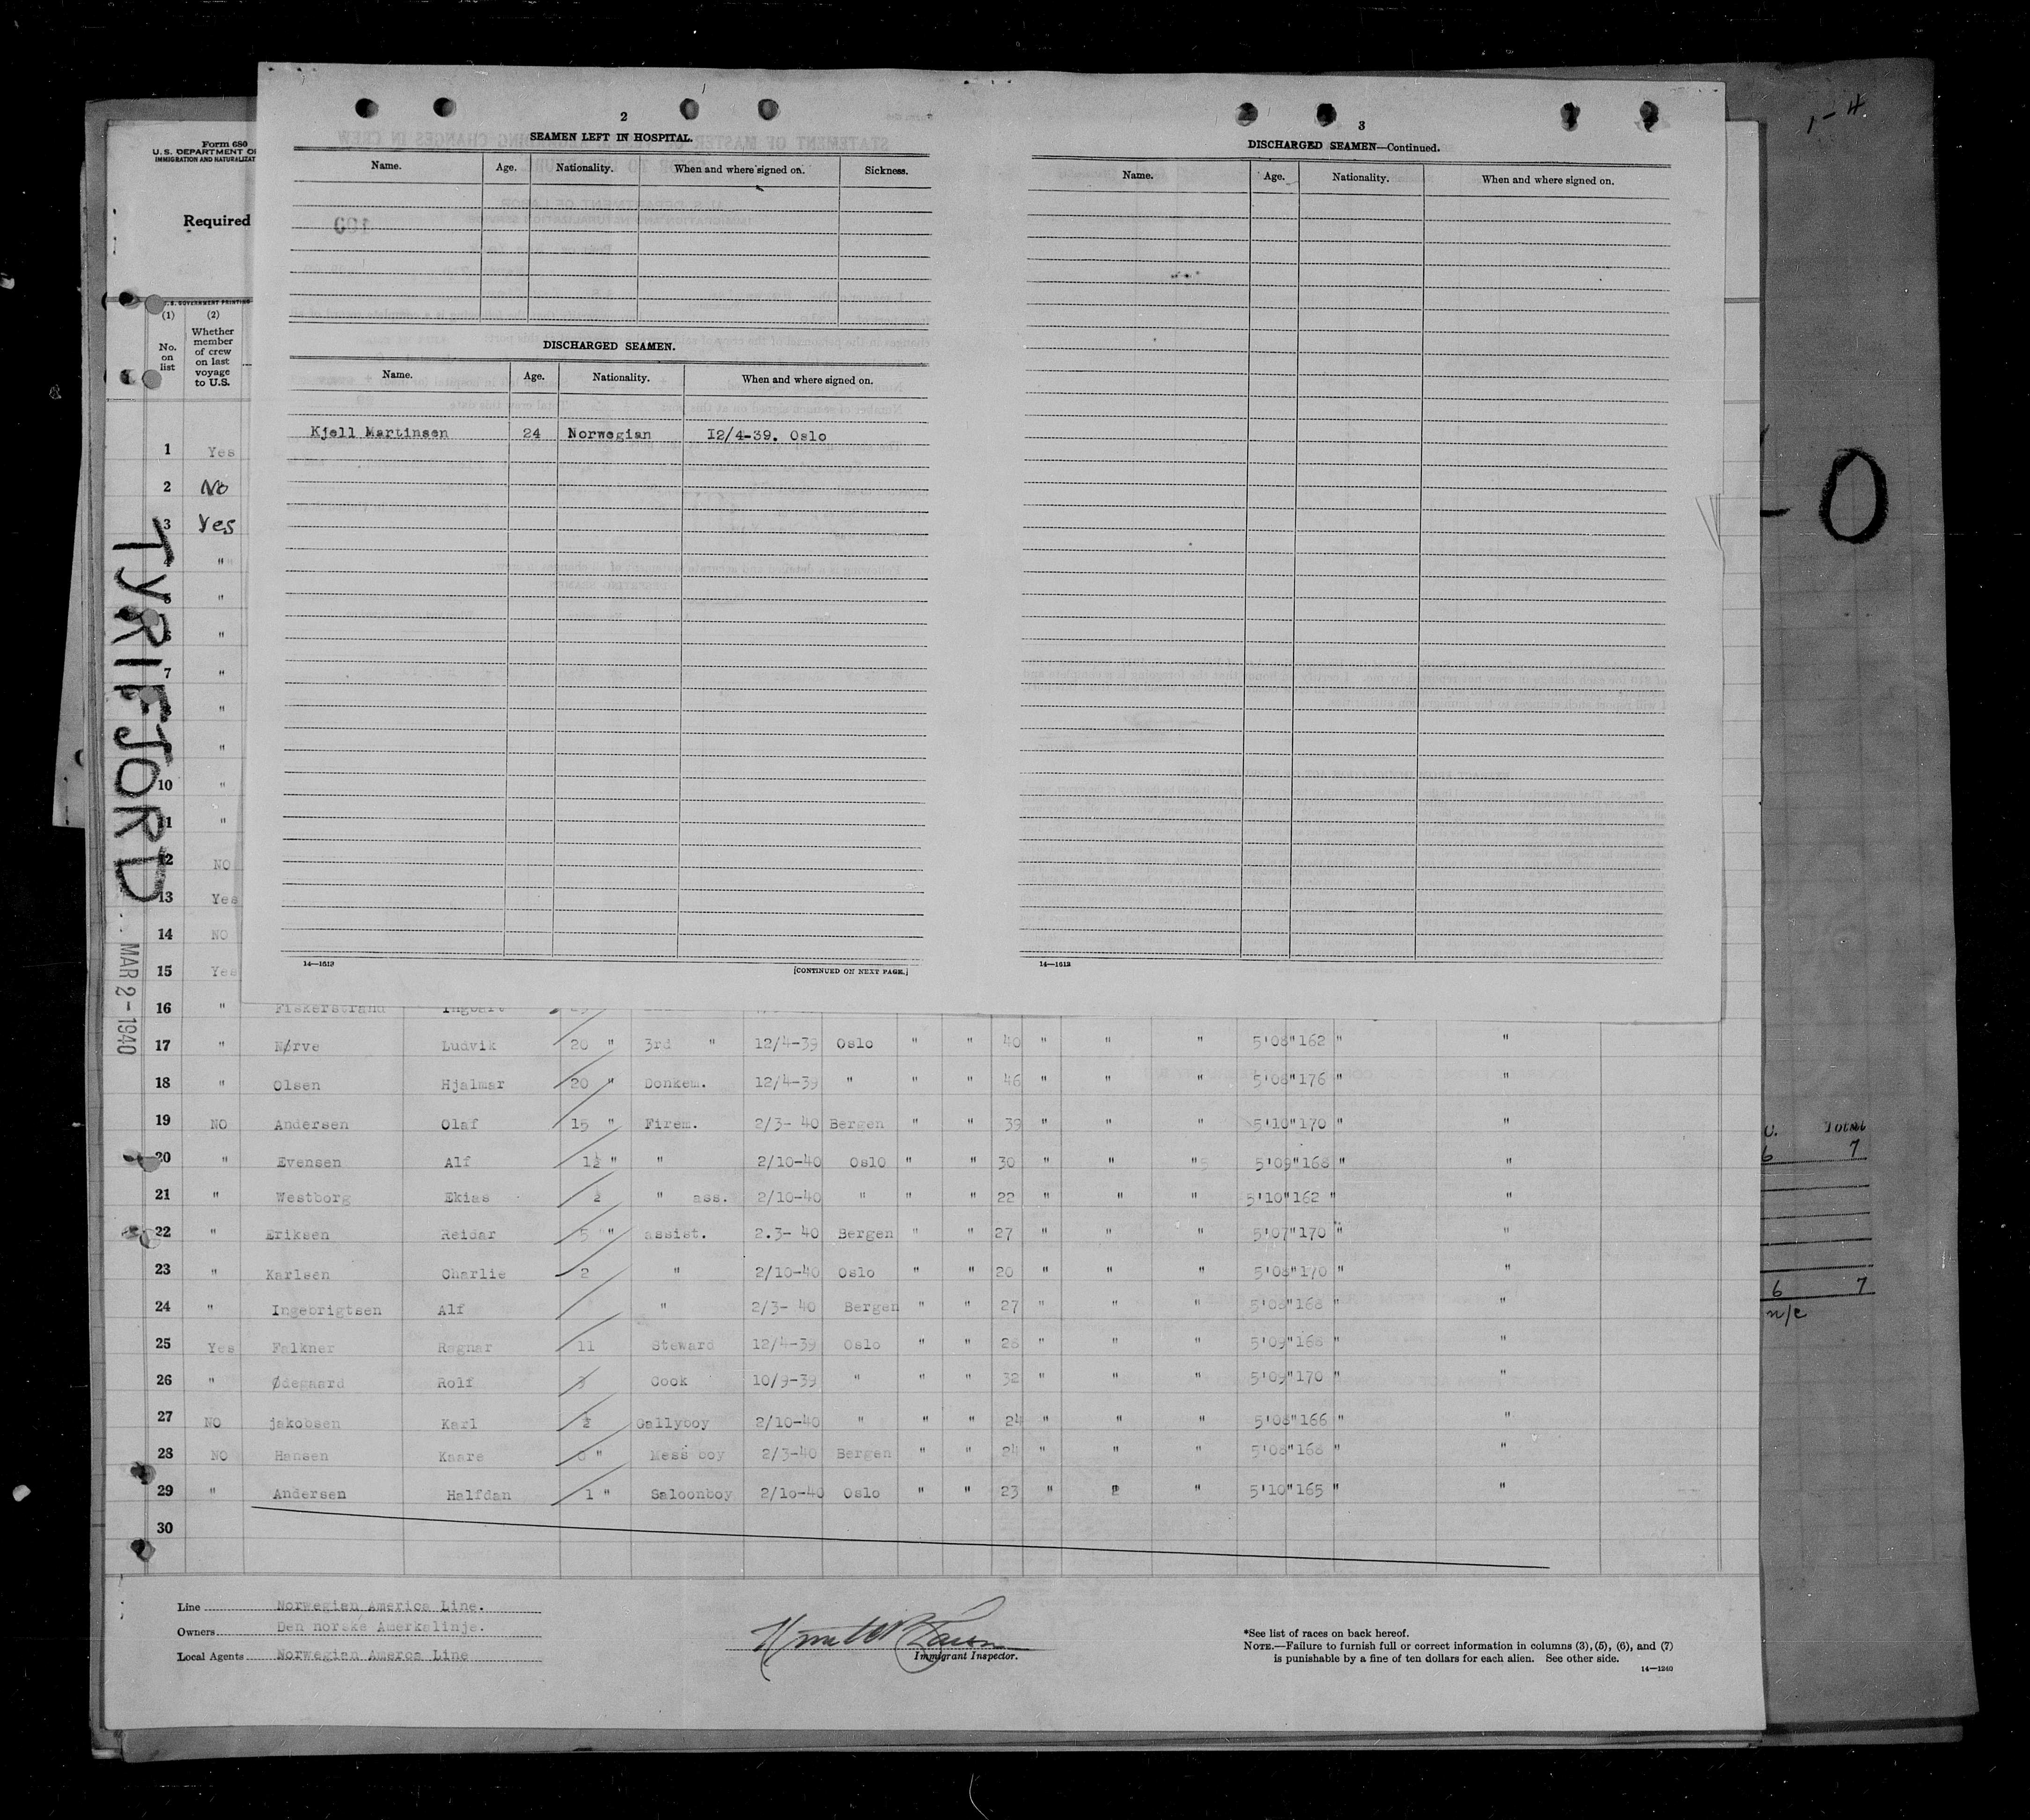 1-4
Form 680
U.S. DEPARTMENT OF
IMMIGRATION AND NATURALIZAT
Required
U.S. GOVERNMENT PRINTING
(1) (2)
No. on list
Whether member of crew on last voyage to U.S.
2
SEAMEN LEFT IN HOSPITAL.
Name. Age. Nationality. When and where signed on. Sickness.
DISCHARGED SEAMEN.
Name. Age. Nationality. When and where signed on.
Kjell Martinsen 24 Norwegian 12/4-39. Oslo
14—1613
[CONTINUED ON NEXT PAGE.]
3
DISCHARGED SEAMEN—Continued.
Name. Age. Nationality. When and where signed on.
14—1613
TYRIFJORD
MAR 2-1940
1 Yes
2 No
3 Yes
4 "
5 "
6 "
7 "
8 "
9 "
10 "
11 "
12 NO
13 Yes
14 NO
15 Yes
16 " Fiskerstrand
17 " Nørve Ludvik 20 " 3rd " 12/4-39 Oslo " " 40 " " " 5'08" 162 " "
18 " Olsen Hjalmar 20 " Donkem. 12/4-39 " " " 46 " " " 5'08" 176 " "
19 NO Andersen Olaf 15 " Firem. 2/3- 40 Bergen " " 39 " " " 5'10" 170 " "
20 " Evensen Alf 1½ " " 2/10-40 Oslo " " 30 " " " 5'09" 168 " "
21 " Westborg Ekias ½ " ass. 2/10-40 " " " 22 " " " 5'10" 162 " "
22 " Eriksen Reidar 5 " assist. 2.3- 40 Bergen " " 27 " " " 5'07" 170 " "
23 " Karlsen Charlie 2 " 2/10-40 Oslo " " 20 " " " 5'08" 170 " "
24 " Ingebrigtsen Alf " 2/3- 40 Bergen " " 27 " " " 5'08" 168 " "
25 Yes Falkner Ragnar 11 Steward 12/4-39 Oslo " " 28 " " " 5'09" 168 "
26 " Ødegaard Rolf 3 Cook 10/9-39 " " " 32 " " " 5'09" 170 " "
27 NO jakobsen Karl ½ Gallyboy 2/10-40 " " " 24 " " " 5'08" 166 " "
28 NO Hansen Kaare " Mess boy 2/3-40 Bergen " " 24 " " " 5'08" 168 " "
29 " Andersen Halfdan 1 " Saloonboy 2/10-40 Oslo " " 23 " " 5'10" 165 " "
30
Line Norwegian America Line.
Owners Den norske Amerkalinje.
Local Agents Norwegian Ameroa Line
Immigrant Inspector.
*See list of races on back hereof.
NOTE.—Failure to furnish full or correct information in columns (3), (5), (6), and (7)
is punishable by a fine of ten dollars for each alien. See other side.
14—1240
Total
6 7
6 7
n/c